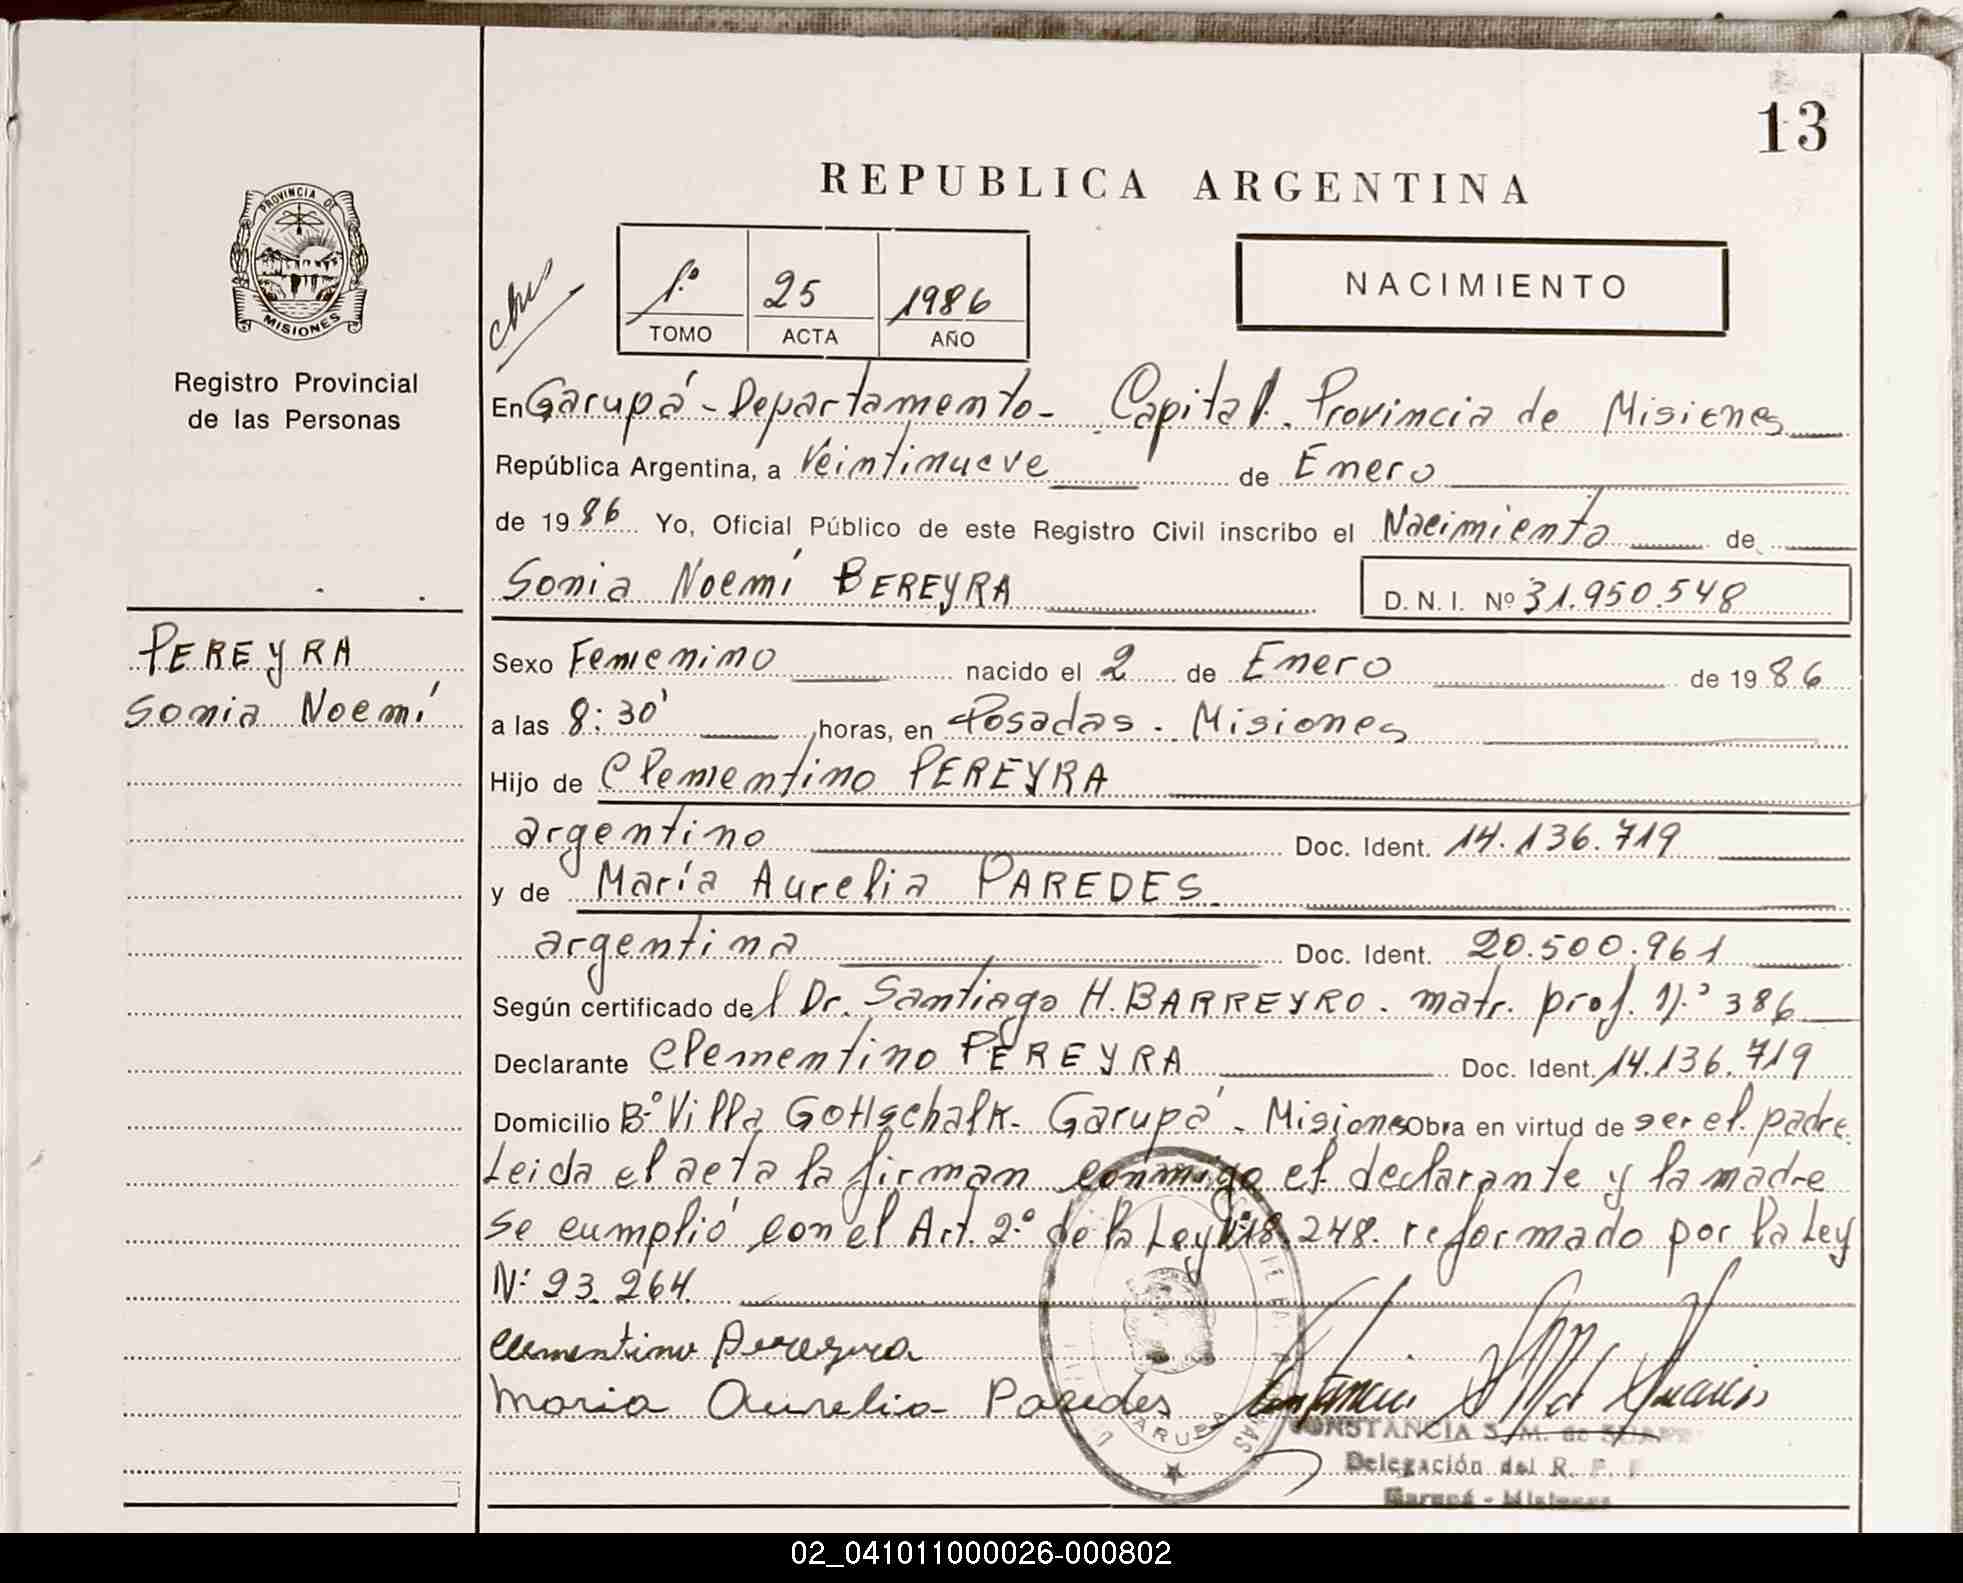 13
REPUBLICA ARGENTINA
PROVINCIA DE
MISIONES
Registro Provincial
de las Personas
1º 25 1986
TOMO ACTA AÑO
NACIMIENTO
En Garupá - Departamento - Capital. Provincia de Misiones
República Argentina, a Veintinueve de Enero
de 1986 Yo, Oficial Público de este Registro Civil inscribo el Nacimiento de
Sonia Noemí BEREYRA D. N. I. Nº 31.950.548
PEREYRA
Sonia Noemí
Sexo Femenino nacido el 2 de Enero de 1986
a las 8:30' horas, en Posadas. Misiones
Hijo de Clementino PEREYRA
argentino Doc. Ident. 14.136.719
y de María Aurelia PAREDES.
argentina Doc. Ident. 20.500.961
Según certificado del Dr. Santiago H. BARREYRO. matr. prof. Nº 386
Declarante Clementino PEREYRA Doc. Ident. 14.136.719
Domicilio Bº Villa Gottschalk - Garupá - Misiones Obra en virtud de ser el padre
Leida el acta la firman conmigo el declarante y la madre
se cumplió con el Art. 2º de la Ley 18.248. reformado por la Ley
Nº 23.264.
Clementino Pereyra
Maria Aurelia Paredes
GARUPA
CONSTANCIA S. M. de
Delegación del R. P.
Garupá - Misiones
02_041011000026-000802